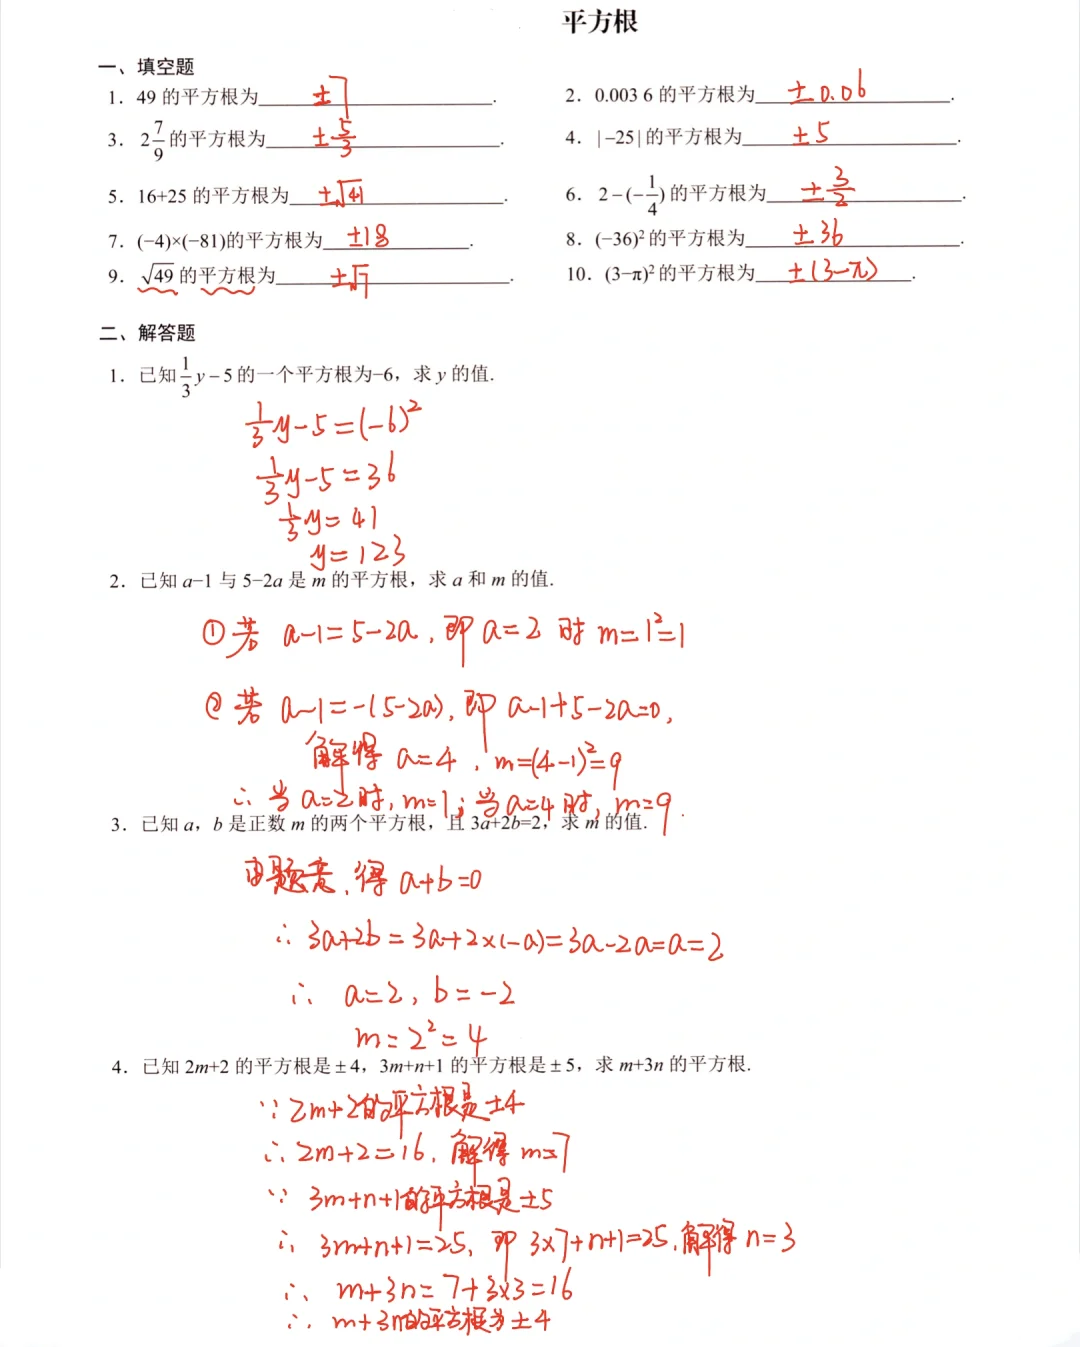 平方根
一、填空题
1. 49 的平方根为 ±7 .
2. 0.003 6 的平方根为 ±0.06 .
3. 2 7/9 的平方根为 ±5/3 .
4. |−25| 的平方根为 ±5 .
5. 16+25 的平方根为 ±√41 .
6. 2−(−1/4) 的平方根为 ±3/2 .
7. (−4)×(−81)的平方根为 ±18 .
8. (−36)² 的平方根为 ±36 .
9. √49 的平方根为 ±√7 .
10. (3−π)² 的平方根为 ±(3−π) .
二、解答题
1. 已知 1/3 y−5 的一个平方根为−6，求 y 的值.
1/3 y−5=(−6)²
1/3 y−5=36
1/3 y=41
y=123
2. 已知 a−1 与 5−2a 是 m 的平方根，求 a 和 m 的值.
①若 a−1=5−2a，即 a=2 时 m=1²=1
②若 a−1=−(5−2a)，即 a−1+5−2a=0，
解得 a=4，m=(4−1)²=9
∴当 a=2时，m=1；当 a=4时，m=9.
3. 已知 a，b 是正数 m 的两个平方根，且 3a+2b=2，求 m 的值.
由题意，得 a+b=0
∴ 3a+2b=3a+2×(−a)=3a−2a=a=2
∴ a=2，b=−2
m=2²=4
4. 已知 2m+2 的平方根是±4，3m+n+1 的平方根是±5，求 m+3n 的平方根.
∵ 2m+2的平方根是±4
∴ 2m+2=16，解得 m=7
∵ 3m+n+1的平方根是±5
∴ 3m+n+1=25，即 3×7+n+1=25，解得 n=3
∴ m+3n=7+3×3=16
∴ m+3n的平方根为±4